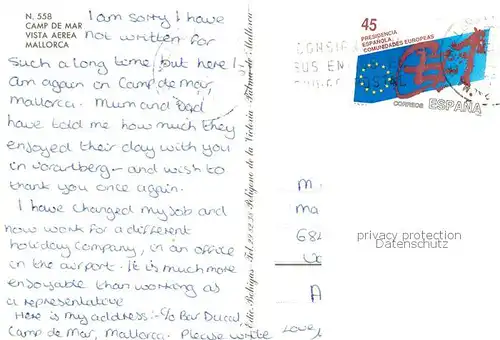 N. 558
CAMP DE MAR
VISTA AEREA
MALLORCA
I am sorry I have
not written for
such a long time, but here I
am again on Camp de mar,
mallorca. Mum and Dad
have told me how much they
enjoyed their day with you
in vorarlberg - and wish to
thank you once again.
I have changed my job and
now work for a different
holiday company, in an office
in the airport. It is much more
enjoyable than working as
a representative
Here is my address:- c/o Bar Ducal
Camp de Mar, Mallorca. Please write
Love
45
PRESIDENCIA
ESPAÑOLA
COMUNIDADES EUROPEAS
CORREOS ESPAÑA
M.
Ma
privacy protection
Datenschutz
A